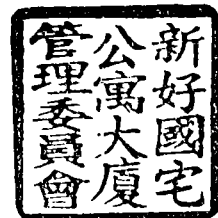 新好國宅
公寓大廈
管理委員會